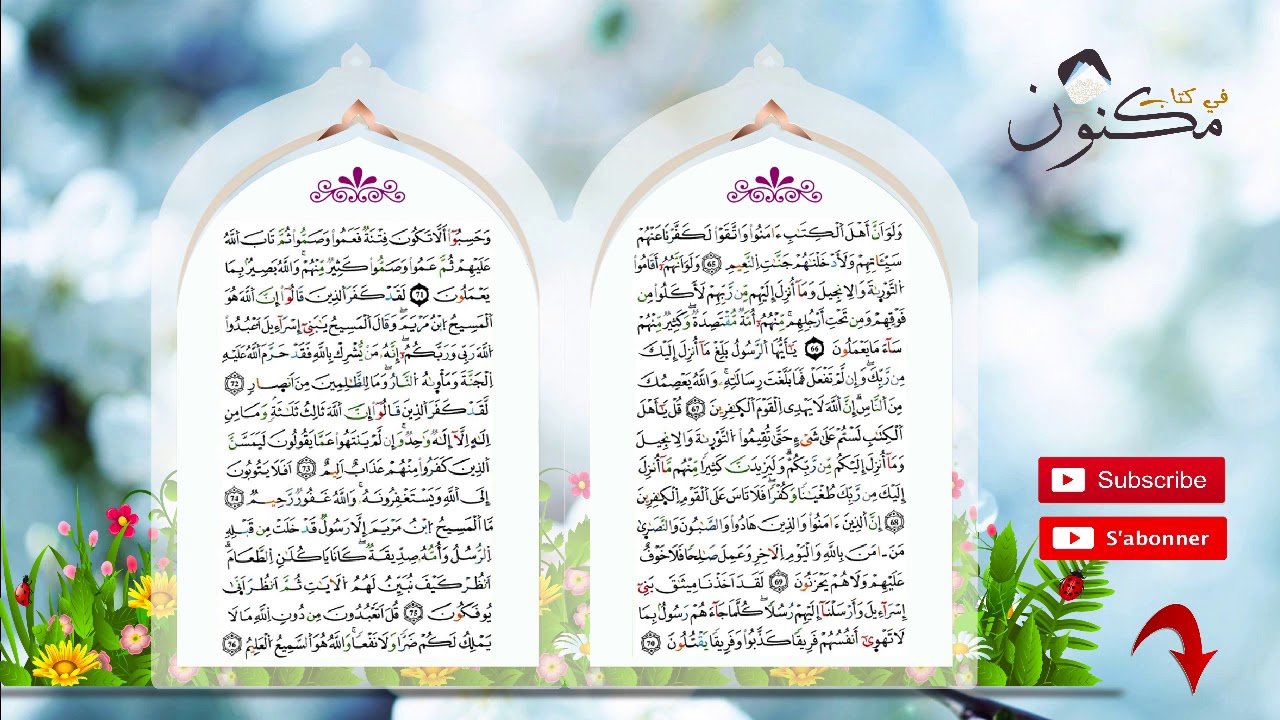 في كتاب
مكنون
وَلَوَ اَنَّ أَهْلَ اَلْكِتَٰبِ ءَامَنُواْ وَاتَّقَوْاْ لَكَفَّرْنَا عَنْهُمْ
سَيِّـَٔاتِهِمْ وَلَأَدْخَلْنَٰهُمْ جَنَّٰتِ اِلنَّعِيمِ 65 وَلَوَ اَنَّهُمُۥٓ أَقَامُواْ
اُلتَّوْرِىٰةَ وَالِانجِيلَ وَمَآ أُنزِلَ إِلَيْهِم مِّن رَّبِّهِمْ لَأَكَلُواْ مِن
فَوْقِهِمْ وَمِن تَحْتِ أَرْجُلِهِم مِّنْهُمُۥٓ أُمَّةٌ مُّقْتَصِدَةٌ وَكَثِيرٌ مِّنْهُمْ
سَآءَ مَا يَعْمَلُونَ 66 يَٰٓأَيُّهَا اَلرَّسُولُ بَلِّغْ مَآ أُنزِلَ إِلَيْكَ
مِن رَّبِّكَ وَإِن لَّمْ تَفْعَلْ فَمَا بَلَّغْتَ رِسَالَٰتِهِۦ وَاللَّهُ يَعْصِمُكَ
مِنَ اَلنَّاسِ إِنَّ اَللَّهَ لَا يَهْدِى اِلْقَوْمَ اَلْكٰ۪فِرِينَ 67 قُلْ يَٰٓأَهْلَ
اَلْكِتَٰبِ لَسْتُمْ عَلَىٰ شَىْءٍ حَتَّىٰ تُقِيمُواْ اُلتَّوْرِىٰةَ وَالِانجِيلَ
وَمَآ أُنزِلَ إِلَيْكُم مِّن رَّبِّكُمْ وَلَيَزِيدَنَّ كَثِيراً مِّنْهُم مَّآ أُنزِلَ
إِلَيْكَ مِن رَّبِّكَ طُغْيَٰناً وَكُفْراً فَلَا تَاسَ عَلَى اَلْقَوْمِ اِلْكٰ۪فِرِينَ
68 إِنَّ اَلذِينَ ءَامَنُواْ وَالذِينَ هَادُواْ وَالصَّٰبُونَ وَالنَّصَٰرِىٰ
مَنَ اٰمَنَ بِاللَّهِ وَالْيَوْمِ اِلَاخِرِ وَعَمِلَ صَٰلِحاً فَلَا خَوْفٌ
عَلَيْهِمْ وَلَا هُمْ يَحْزَنُونَ 69 لَقَدَ اَخَذْنَا مِيثَٰقَ بَنِىٓ
إِسْرَآءِيلَ وَأَرْسَلْنَآ إِلَيْهِمْ رُسُلاً كُلَّمَا جَآءَهُمْ رَسُولُۢ بِمَا
لَا تَهْوِىٰٓ أَنفُسُهُمْ فَرِيقاً كَذَّبُواْ وَفَرِيقاً يَقْتُلُونَ 70
وَحَسِبُوٓاْ أَلَّا تَكُونَ فِتْنَةٌ فَعَمُواْ وَصَمُّواْ ثُمَّ تَابَ اَللَّهُ
عَلَيْهِمْ ثُمَّ عَمُواْ وَصَمُّواْ كَثِيرٌ مِّنْهُمْ وَاللَّهُ بَصِيرُۢ بِمَا
يَعْمَلُونَ 71 لَقَدْ كَفَرَ اَلذِينَ قَالُوٓاْ إِنَّ اَللَّهَ هُوَ
اَلْمَسِيحُ اُبْنُ مَرْيَمَ وَقَالَ اَلْمَسِيحُ يَٰبَنِىٓ إِسْرَآءِيلَ اَعْبُدُواْ
اُللَّهَ رَبِّى وَرَبَّكُمُۥٓ إِنَّهُۥ مَنْ يُّشْرِكْ بِاللَّهِ فَقَدْ حَرَّمَ اَللَّهُ عَلَيْهِ
اِلْجَنَّةَ وَمَأْوِىٰهُ اُلنَّارُ وَمَا لِلظَّٰلِمِينَ مِنَ اَنصٰ۪ارٍ 72
لَّقَدْ كَفَرَ اَلذِينَ قَالُوٓاْ إِنَّ اَللَّهَ ثَالِثُ ثَلَٰثَةٍ وَمَا مِنِ
اِلَٰهٍ اِلَّآ إِلَٰهٌ وَٰحِدٌ وَإِن لَّمْ يَنتَهُواْ عَمَّا يَقُولُونَ لَيَمَسَّنَّ
اَلذِينَ كَفَرُواْ مِنْهُمْ عَذَابٌ اَلِيمٌ 73 اَفَلَا يَتُوبُونَ
إِلَى اَللَّهِ وَيَسْتَغْفِرُونَهُۥ وَاللَّهُ غَفُورٌ رَّحِيمٌ 74
مَّا اَلْمَسِيحُ اُبْنُ مَرْيَمَ إِلَّا رَسُولٌ قَدْ خَلَتْ مِن قَبْلِهِ
اِلرُّسُلُ وَأُمُّهُۥ صِدِّيقَةٌ كَانَا يَاكُلَٰنِ اِلطَّعَامَ
اَنظُرْ كَيْفَ نُبَيِّنُ لَهُمُ اُلَايَٰتِ ثُمَّ اَنظُرَ اَنّٰ۪ى
يُوفَكُونَ 75 قُلَ اَتَعْبُدُونَ مِن دُونِ اِللَّهِ مَا لَا
يَمْلِكُ لَكُمْ ضَرّاً وَلَا نَفْعاً وَاللَّهُ هُوَ اَلسَّمِيعُ اُلْعَلِيمُ 76
Subscribe
S'abonner